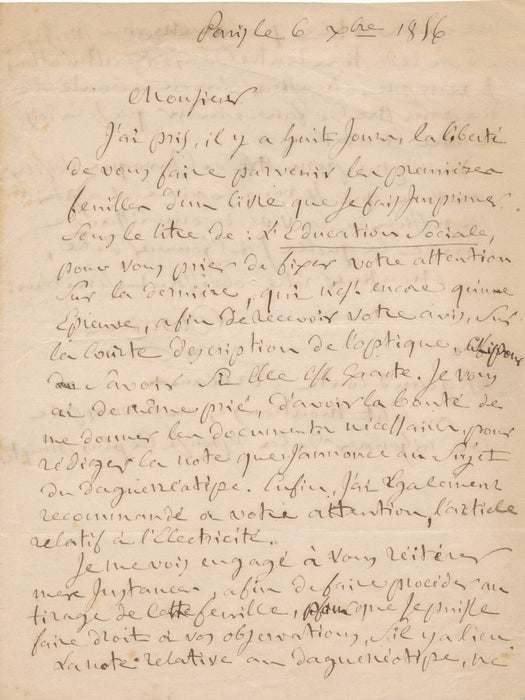 Paris le 6 xbre 1856
Monsieur
J'ai pris, il y a huit Jours, la liberté
de vous faire parvenir les premières
feuilles d'un livre que Je fais Imprimer
Sous le titre de : L'Education Sociale,
pour vous prier de fixer votre attention
Sur la dernière, qui n'est encore qu'une
Epreuve, afin de recevoir votre avis, Sur
la Courte description de l'optique,
Savoir Si Elle Est Exacte. Je vous
ai de même prié, d'avoir la bonté de
me donner les documents nécessaires, pour
rédiger la note que J'annonce au Sujet
du daguereotipe. Enfin, J'ai Egalement
recommandé à votre attention, l'article
relatif à l'Electricité.
Je me vois engagé à vous réitérer
mes Instances, afin de faire procéder au
tirage de cette feuille, que Je puisse
faire droit à vos observations, S'il y a lieu.
La note relative au daguereotipe, ne